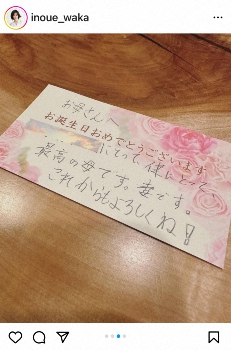 inoue_waka
お母さんへ
お誕生日おめでとうございます
にとって 僕にとって
最高の母です。妻です。
これからもよろしくね!